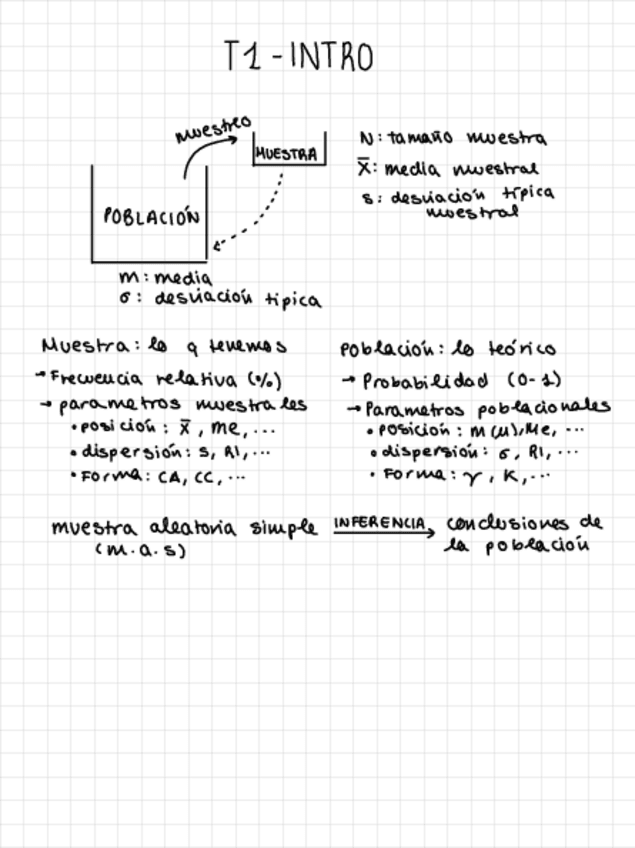 T1 - INTRO
muestreo
MUESTRA
POBLACIÓN
N: tamaño muestra
x̄: media muestral
s: desviación típica
muestral
m: media
σ: desviación tipica
Muestra: lo q tenemos
→ Frecuencia relativa (%)
→ parametros muestrales
• posición: x̄, me, ...
• dispersión: s, RI, ...
• Forma: CA, CC, ...
población: lo teórico
→ Probabilidad (0-1)
→ Parametros poblacionales
• posición: m (μ), Me, ...
• dispersión: σ, RI, ...
• Forma: γ, K, ...
muestra aleatoria simple INFERENCIA → conclusiones de
(m.a.s) la población